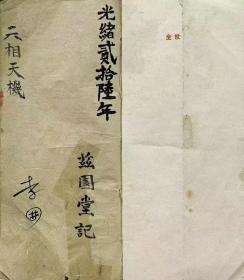 光緒貳拾陸年
玆園堂記
六相天機
李
世全